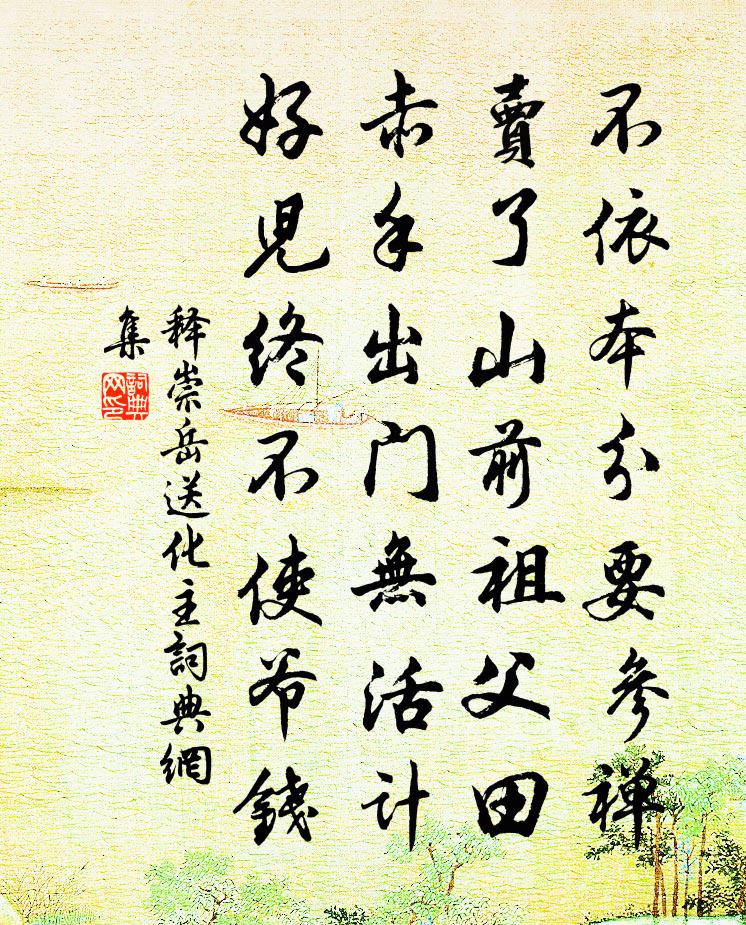 不依本分要參禅
賣了山前祖父田
赤手出門無活計
好児終不使爷錢
释崇岳送化主詞典網
集
詞典
网印